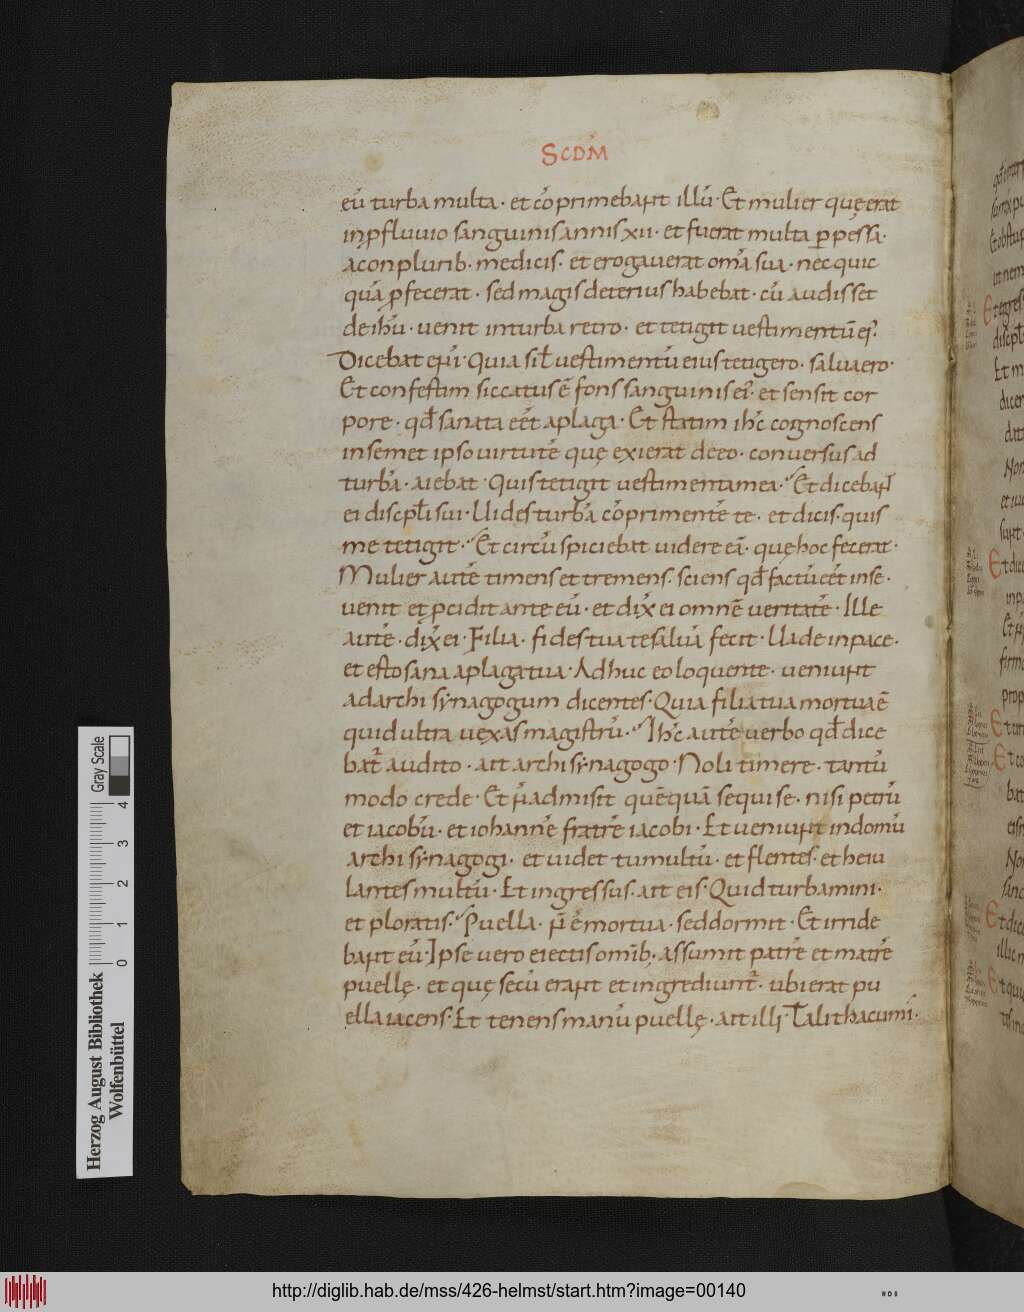 SCDM̄
eū turba multa · et cōprimebant illū · Et mulier quę erat
in ꝓfluuio sanguinis annis xii · et fuerat multa ꝑpessa ·
a conplurib · medicis · et erogauerat omīa sua · nec quic
quā ꝓfecerat · sed magis deterius habebat · cū audisset
de ihū · uenit in turba retro · et tetigit uestimentū ei ·
Dicebat eni · Quia si ł uestimentū eius tetigero · salua ero ·
Et confestim siccatus ē fons sanguinis ei · et sensit cor
pore · qđ sanata eēt a plaga · Et statim ihc cognoscens
in semet ipso uirtutē quę exierat de eo · conuersus ad
turbā · aiebat · Quis tetigit uestimenta mea · Et dicebant
ei discpłi sui · Uides turbā cōprimentē te · et dicis · quis
me tetigit · Et circūspiciebat uidere eā · quę hoc fecerat ·
Mulier autē timens et tremens · sciens qđ factū eēt in se ·
uenit et ꝓcidit ante eū · et dix̄ ei omnē ueritatē · Ille
autē · dix̄ ei · Filia · fides tua te saluā fecit · Uade in pace ·
et esto sana a plaga tua · Adhuc eo loquente · ueniunt
ad archisynagogum dicentes · Quia filia tua mortua ē
quid ultra uexas magistrū · Ihc autē uerbo qđ dice
bat̄ audito · ait archisynagogo · Noli timere · tantū
modo crede · Et n̄ admisit quēquā sequi se · nisi petrū
et iacobū · et iohannē fratrē iacobi · Et ueniunt in domū
archisynagogi · et uidet tumultū · et flentes · et heiu
lantes multū · Et ingressus · ait eis · Quid turbamini ·
et ploratis · Puella · n̄ ē mortua · sed dormit · Et irride
bant eū · Ipse uero eiectis omīb · assumit patrē et matrē
puellę · et quę secū erant et ingrediunt̄ · ubi erat pu
ella iacens · Et tenens manū puellę · ait illi · Talitha cumi ·
Herzog August Bibliothek
Wolfenbüttel
0 1 2 3 4
Gray Scale
http://diglib.hab.de/mss/426-helmst/start.htm?image=00140